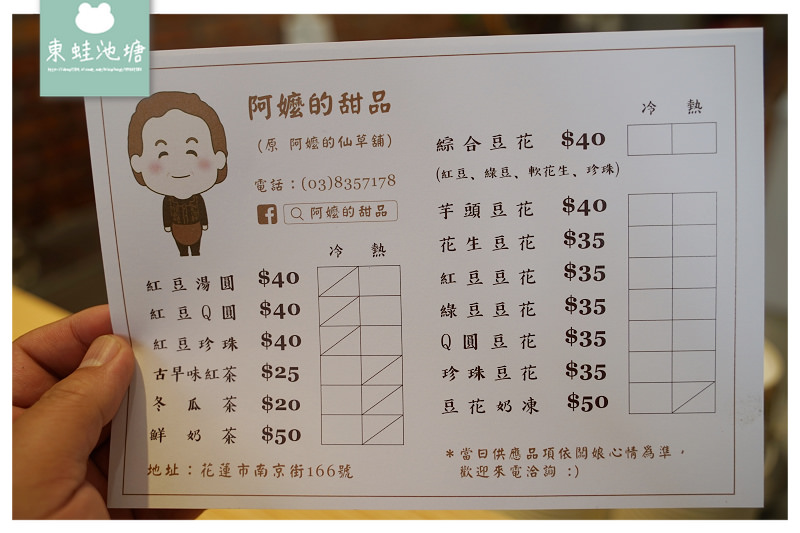 東蛙池塘
阿嬤的甜品
(原 阿嬤的仙草舖)
電話：(03)8357178
阿嬤的甜品
冷 熱
紅豆湯圓 $40
紅豆Q圓 $40
紅豆珍珠 $40
古早味紅茶 $25
冬瓜茶 $20
鮮奶茶 $50
地址：花蓮市南京街166號
冷 熱
綜合豆花 $40
(紅豆、綠豆、軟花生、珍珠)
芋頭豆花 $40
花生豆花 $35
紅豆豆花 $35
綠豆豆花 $35
Q圓豆花 $35
珍珠豆花 $35
豆花奶凍 $50
＊當日供應品項依闆娘心情為準，
歡迎來電洽詢 :)